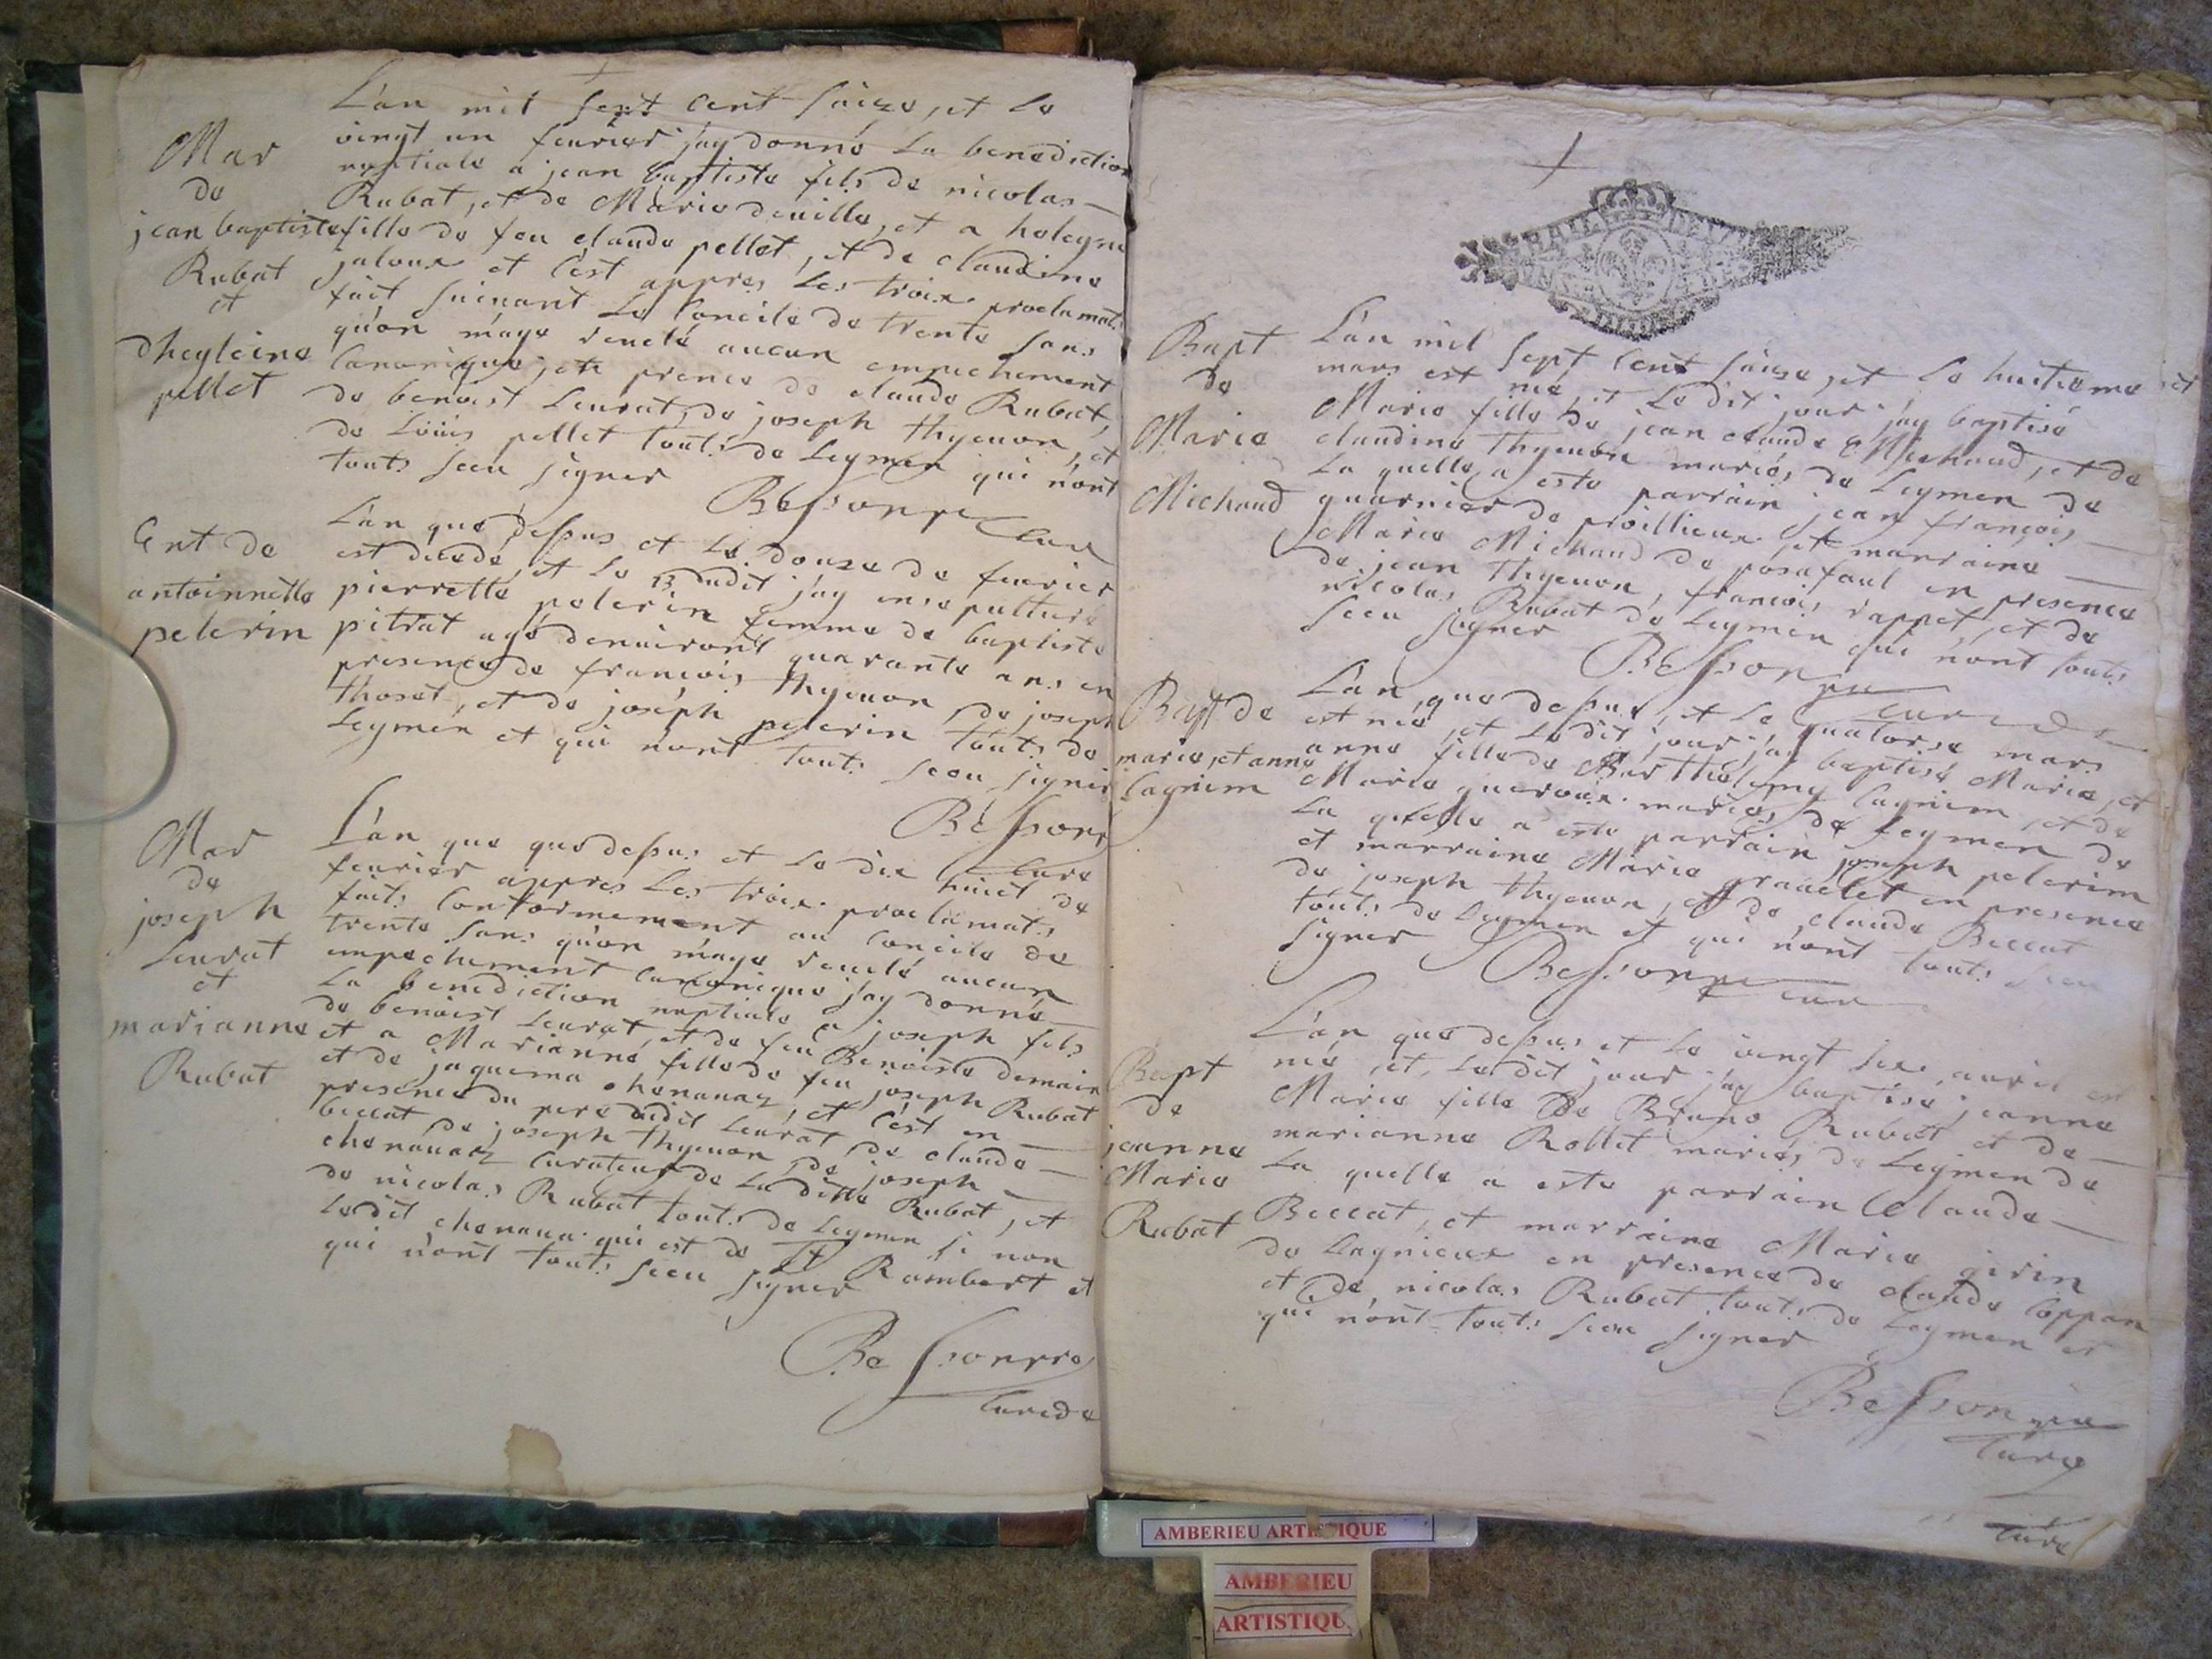 L'an mil sept cent saize, et le
vingt un feurier j'ay donné la benediction
nuptiale a jean baptiste fils de nicolas
Rubat, et de Marie deuille, et a holegne
fille de feu claude pellet, et de claudine
jaloux et c'est appres les troix proclamat.
fait suiuant le Concile de trente sans
qu'on m'aye reuelé aucun empechement
Canonique, en prence de claude Rubat,
de benoist Leurat, de joseph thyeuon, et
de Loüis pellet touts de Leymen qui n'ont
touts sceu signer
Bessonne
Curé
Mar
de
jean baptiste
Rubat
et
dhegleine
pellet
L'an que dessus et le douze de feurier
est decedé, et le 13 dudit j'ay ensepulturé
pierrette pelerin femme de baptiste
pitrat agé denuiront quarante ans en
presence de francois thyeuon, de joseph
thoset, et de joseph pelerin touts de
Leymen et qui n'ont touts sceu signer
Bessonne
Curé
Ent de
antoinnette
pelerin
L'an que que dessus et le dix huict de
feurier appres les troix proclamats
faits Conformement au Concile de
trente sans qu'on m'aye reuelé aucun
empechement canonique j'ay donné
la benediction nuptiale a joseph fils
de benoist Leurat, et de feu Benoiste demain
et a Marianne fille de feu joseph Rubat
et de jaquema chenauaz, et c'est en
presence du pere dudit Leurat de claude
beccat de joseph thyeuon, de joseph
chenauaz curateur de la ditte Rubat, et
de nicolas Rubat touts de Leymen si non
ledit chenaua qui est de St Rambert et
qui n'ont touts sceu signer
Bessonne
Curé de
Mar
de
joseph
Leurat
et
marianne
Rubat
L'an mil sept cent saize, et le huitieme
mars est née, et le dit jour j'ay baptisé
Marie fille de jean claude Michaud, et de
claudine thyeuon mariés de Leymen de
la quelle a esté parrain jean francois
quarnier de proillieux et marraine
Marie Michaud de posafaul en presence
de jean thyeuon, francois rappet, et de
nicolas Rubat de Leymen qui n'ont touts
sceu signer
Bessonne
Curé
Bapt
de
Marie
Michaud
L'an que dessus, et le quatorze mars
est née, et le dit jour j'ay baptisé Marie, et
anne fille de Barthelemy Cagnim, et de
Marie gueroux mariés de Leymen de
la quelle a esté parrain joseph pelerim
et marraine Marie grauelet en presence
de joseph thyeuon, et de claude Beccat
touts de Leymen et qui n'ont touts sceu
signer
Bessonne
Curé
Bapt de
marie, et anne
Cagnim
L'an que dessus et le vingt six auril est
née, et le dit jour j'ay baptisé jeanne
Marie fille de Bruno Rubat et de
marianne Rollet mariés de Leymen de
la quelle a esté parrain Claude
Beccat, et marraine Marie girin
de Lagnieux en presence de claude Coppan
et de nicolas Rubat touts de Leymen et
qui n'ont touts sceu signer
Bessonne
Curé
Bapt
de
jeanne
Marie
Rubat
Curé
AMBERIEU ARTISTIQUE
AMBERIEU
ARTISTIQU